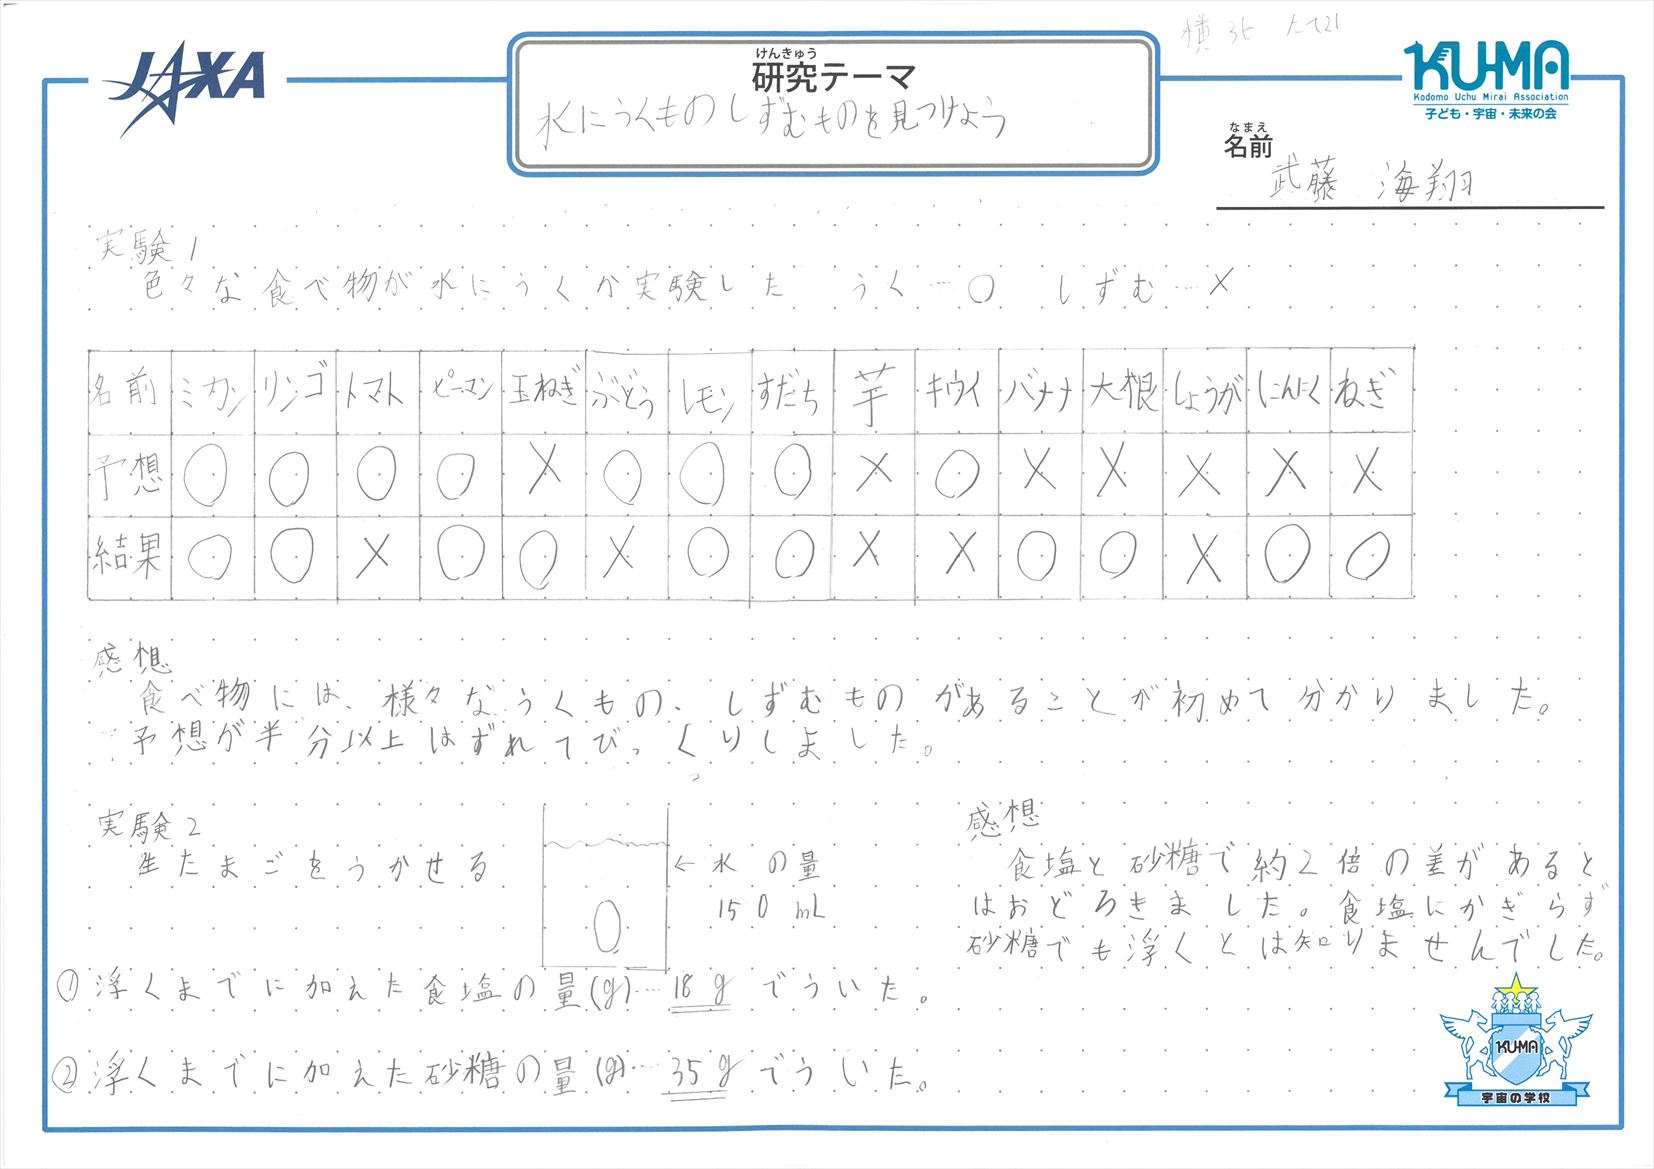 横36 たて21
JAXA
けんきゅう
研究テーマ
水にうくものしずむものを見つけよう
KU-MA
Kodomo Uchu Mirai Association
子ども・宇宙・未来の会
なまえ
名前
武藤 海翔
実験1
色々な食べ物が水にうくか実験した うく…○ しずむ…×
名前 ミカン リンゴ トマト ピーマン 玉ねぎ ぶどう レモン すだち 芋 キウイ バナナ 大根 しょうが にんにく ねぎ
予想 ○ ○ ○ ○ × ○ ○ ○ × ○ × × × × ×
結果 ○ ○ × ○ ○ × ○ ○ × × ○ ○ × ○ ○
感想
食べ物には、様々なうくもの、しずむものがあることが初めて分かりました。
予想が半分以上はずれてびっくりしました。
実験2
生たまごをうかせる
← 水の量
150mL
①浮くまでに加えた食塩の量(g)…18gでういた。
②浮くまでに加えた砂糖の量(g)…35gでういた。
感想
食塩と砂糖で約2倍の差があると
はおどろきました。食塩にかぎらず
砂糖でも浮くとは知りませんでした。
KU-MA
宇宙の学校